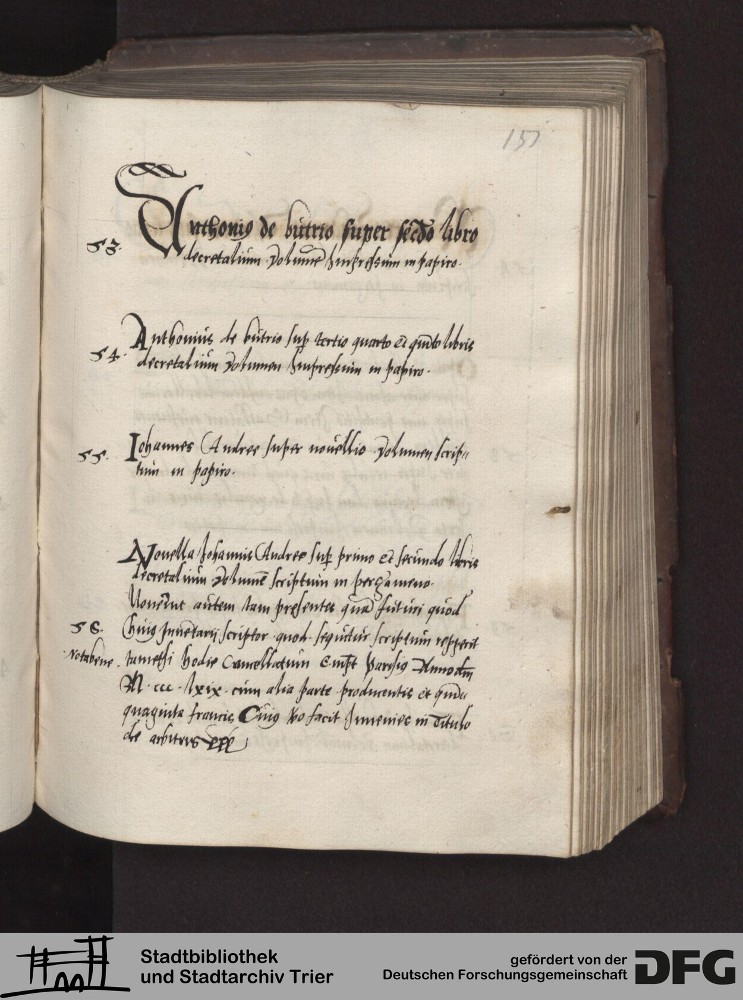 151
Anthonig de butrio super secdo libro
53.
decretalium Volumē Impressum in papiro.
Anthonius de butrio sup tertio quarto et quīto libris
54.
decretalium Volumen Impressum in papiro.
55. Iohannes Andree super nouellis Volumen scrip=
tum in papiro.
Nouella Iohannis Andree sup primo et secundo libris
decretalium Volumē scriptum in pergameno.
Nouerint autem tam presentes quā futuri quod
56. huig Inuētarij scriptor quod sequitur scriptum repperit
Nota bene. tametsi hodie Cancellatum Empt Parisijs Anno dm̄
M. ccc. lxix. cum alia parte pro
quaginta francis Cuig Vo facit Inuenies in Titulo
de arbitris
Stadtbibliothek
und Stadtarchiv Trier
gefördert von der
Deutschen Forschungsgemeinschaft
DFG